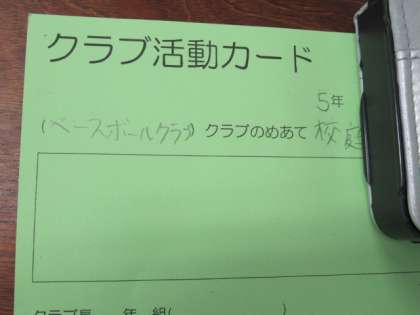 クラブ活動カード
5年
(ベースボールクラブ) クラブのめあて 校庭
クラブ長 年 組( )